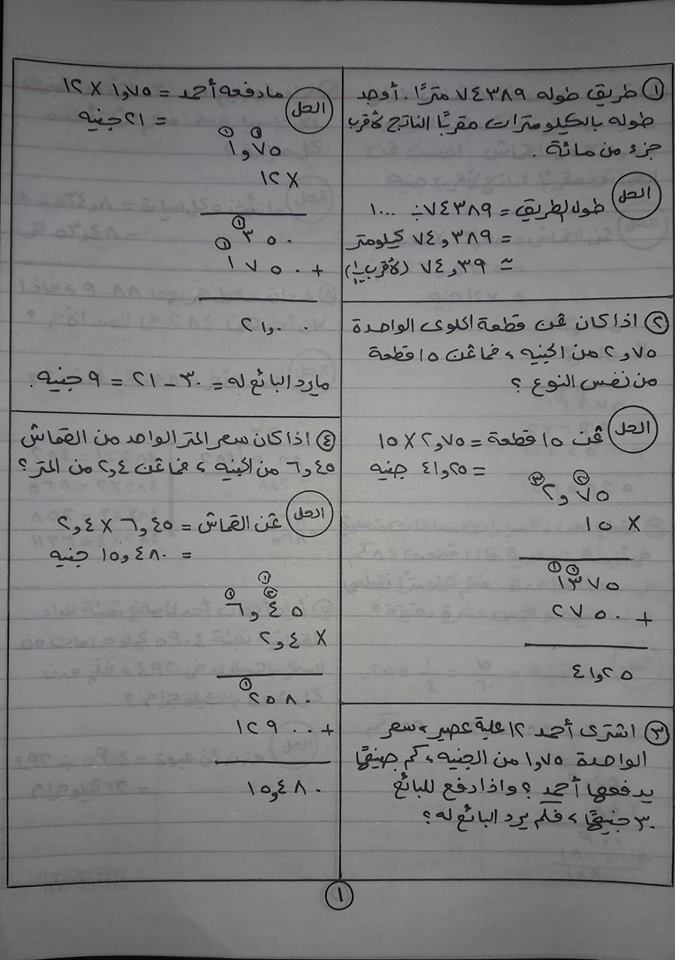 ① طريق طوله ٧٤٣٨٩ مترًا. أوجد
طوله بالكيلومترات مقربًا الناتج لأقرب
جزء من مائة.
الحل
طول الطريق = ٧٤٣٨٩ ÷ ١٠٠٠
= ٧٤,٣٨٩ كيلومتر
≃ ٧٤,٣٩ (لأقرب ١/١٠٠)
② اذا كان ثمن قطعة الحلوى الواحدة
٢,٧٥ من الجنيه، فما ثمن ١٥ قطعة
من نفس النوع؟
الحل
ثمن ١٥ قطعة = ٢,٧٥ × ١٥
= ٤١,٢٥ جنيه
③ ②
٢,٧٥
١٥ ×
① ①
١٣٧٥
٢٧٥٠ +
٤١,٢٥
③ اشترى أحمد ١٢ علبة عصير، سعر
الواحدة ١,٧٥ من الجنيه، كم جنيهًا
يدفعها أحمد؟ واذا دفع للبائع
٣٠ جنيهًا، فلم يرد البائع له؟
الحل
ما دفعه أحمد = ١,٧٥ × ١٢
= ٢١ جنيه
① ①
١,٧٥
١٢ ×
①
٣٥٠
①
١٧٥٠ +
٢١,٠٠
مايرد البائع له = ٣٠ - ٢١ = ٩ جنيه.
④ اذا كان سعر المتر الواحد من القماش
٦,٤٥ من الجنيه، فما ثمن ٢,٤ من المتر؟
الحل
ثمن القماش = ٦,٤٥ × ٢,٤
= ١٥,٤٨٠ جنيه
①
① ②
٦,٤٥
٢,٤ ×
①
٢٥٨٠
١٢٩٠٠ +
١٥,٤٨٠
①